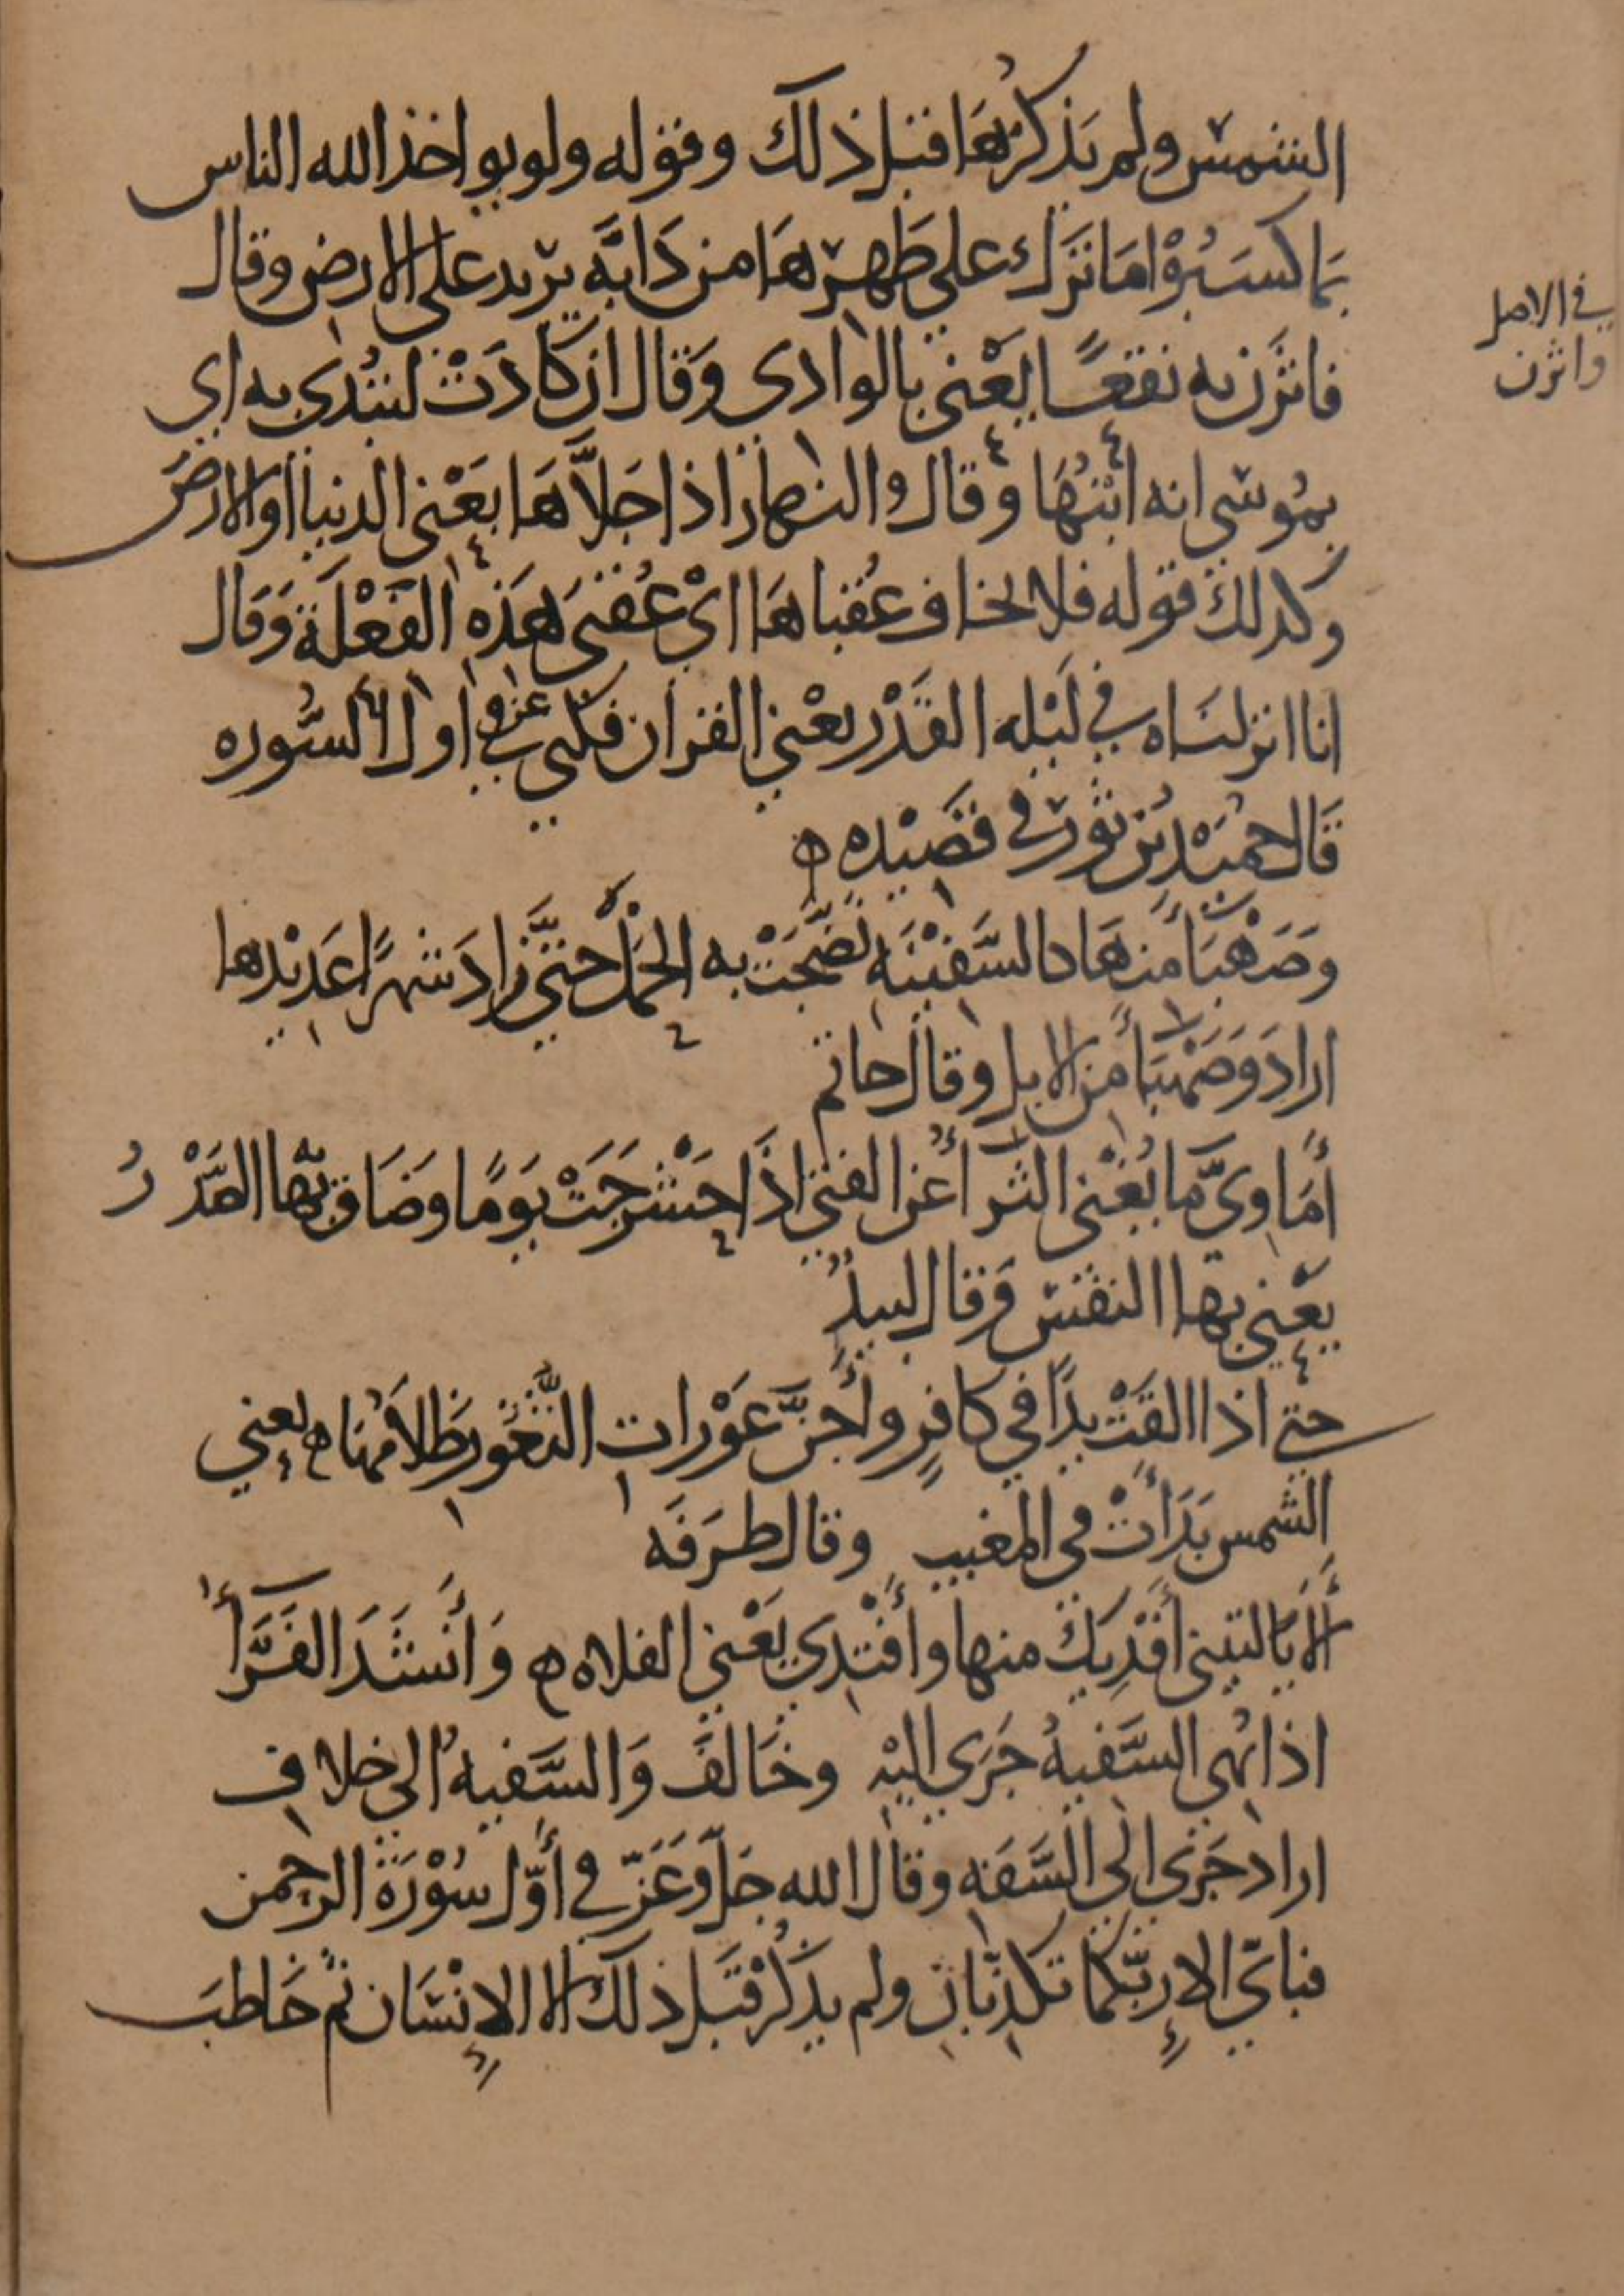 الشمس ولم يذكرها قبل ذلك وقوله ولو يواخذ الله الناس
بما كسَبُوْا مَا تَرَك على ظَهْرهَا من دَابَّه يريد على الارض وقال
في الاصل
واثرن
فاثرن به نقعًا يَعْني بالوادي وَقال ان كادَتْ لتبْدي به اي
بمُوسَى انه ابْنُهَا وقال والنهار اذا جَلاَّهَا يَعْني الدنيا او الارضَ
وكذلك قوله فلا يخاف عُقباهَا ايْ عُقبى هَذِه الفَعْلَة وَقال
انا انزلنَاه في لَيْله القَدْر يعْني القران فكنى عنه في اول السُّوره
قَال حُمَيْد بْن ثَوْر في قصَيْده ه
وَصَهْبَاءَ منهَا كالسَّفيْنَه نَضَّجَتْ به الحَمْلَ حتىَّ زادَ شهرًا عَديْدها
ارادَ وَصَهْبَاءَ من الابل وقال حاتم
أمَاوِيَّ مَا يُغْني الثراءُ عن الفتى اذَا حَشْرَجَتْ يَوَمًا وضَاق بهَا الصَّدْرُ
يَعْني بها النفْسَ وَقال لبيدٌ
حتى اذا القَتْ يدًا في كافرٍ وأجَنَّ عَوْرات الثُّغُور ظَلاَمُهَا ه يعني
الشمس بَدَأتْ في المغيب وقال طرَفَه
أَلاَ يَا ليتني أفْدِيكَ منها وأفْتدي يَعْني الفلاه ه وَأنشَدَ الفَرَّاءُ
اذا نُهي السَّفيهُ جَرَى اليْهِ وخَالفَ وَالسَّفيهُ الى خلاف
اراد جَرَى الى السَّفَه وقال الله جَلّ وَعَزّ في أوّل سُوْرَة الرحمن
فباَيّ الاءِ رَبّكمَا تكذّبَان ولم يذكُرْ قَبل ذلك الا الإنْسَان ثم خَاطبَ